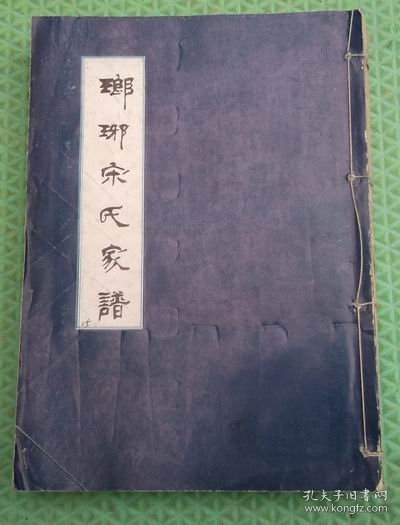 瑯琊宋氏家譜
15
孔夫子旧书网
www.kongfz.com